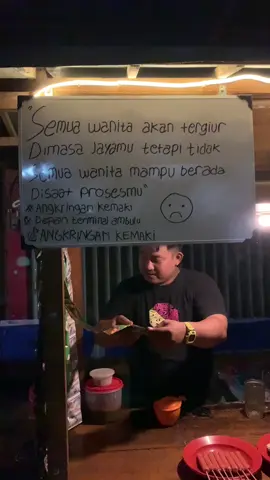 "Semua wanita akan tergiur
Dimasa Jayamu tetapi tidak
Semua wanita mampu berada
Disaat prosesmu"
Angkringan kemaki
Depan terminal ambulu
ANGKRINGAN KEMAKI